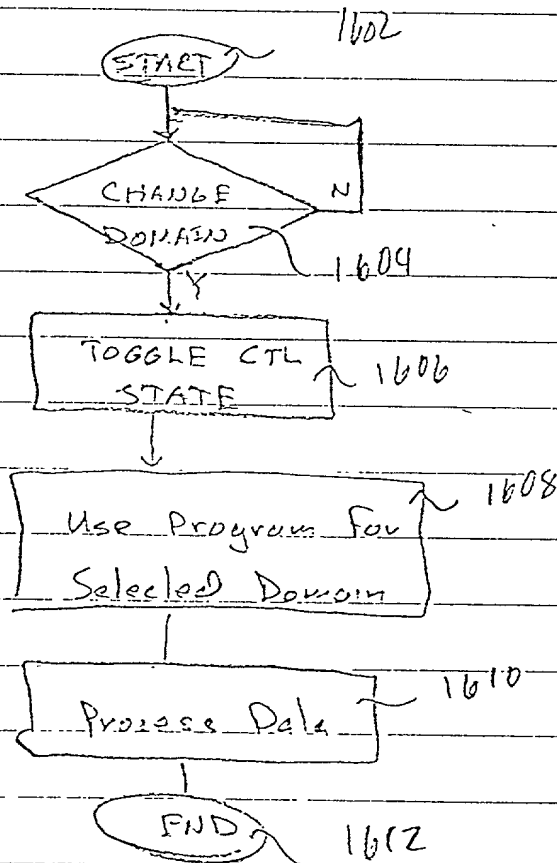 1602
START
CHANGE N
DOMAIN
1604
Y
TOGGLE CTL
STATE
1606
1608
Use Program For
Selected Domain
1610
Process Data
END
1612